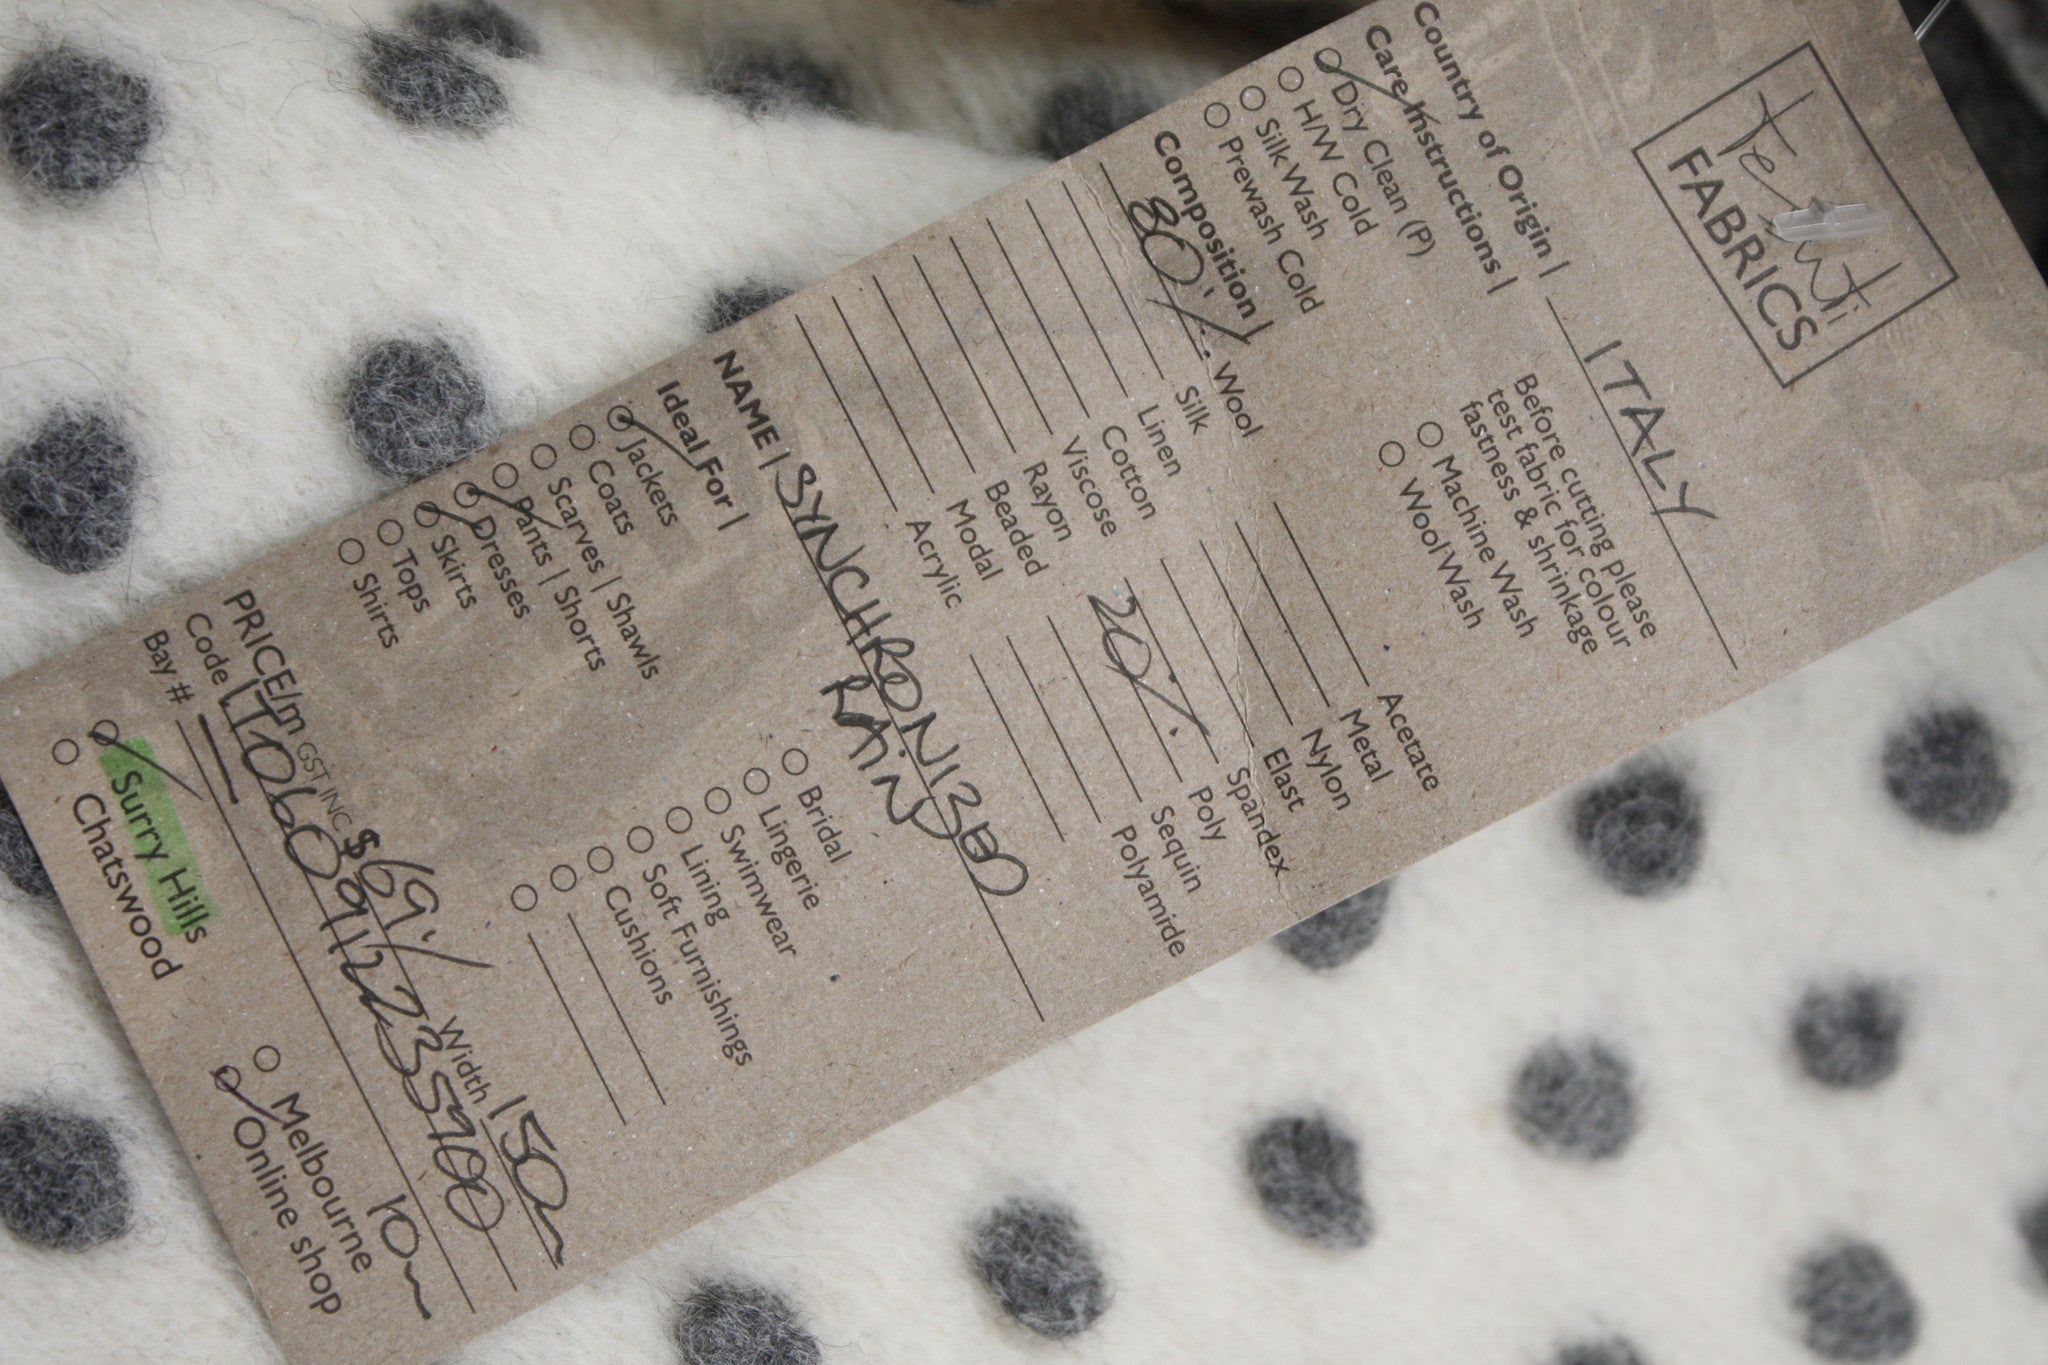 Tessuti
FABRICS
Country of Origin | ITALY
Care Instructions |
Dry Clean (P)
H/W Cold
Silk Wash
Prewash Cold
Before cutting please
test fabric for colour
fastness & shrinkage
Machine Wash
Wool Wash
Composition |
80% Wool
Silk
Linen
Cotton
Viscose
Rayon
Beaded
Modal
Acrylic
Acetate
Metal
Nylon
Elast
Spandex
20% Poly
Sequin
Polyamide
NAME | SYNCHRONIZED
RAIN
Ideal For |
Jackets
Coats
Scarves | Shawls
Pants | Shorts
Dresses
Skirts
Tops
Shirts
Bridal
Lingerie
Swimwear
Lining
Soft Furnishings
Cushions
PRICE/m GST INC $69 Width 150m
Code LT060912235900
Bay # 10m
Surry Hills
Chatswood
Melbourne
Online shop